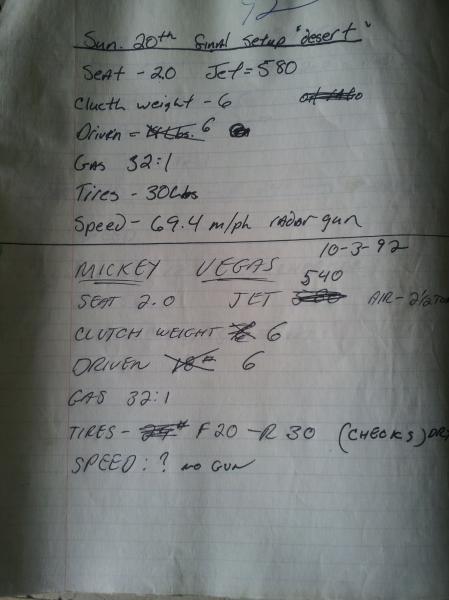 92
Sun. 20th final setup "desert"
Seat - 20 Jet = 580
Clucth weight - 6
Driven = 6
Gas 32:1
Tires - 30Lbs
Speed - 69.4 m/ph radar gun
10-3-92
MICKEY VEGAS
540
SEAT 2.0 JET AIR - 2 1/2
CLUTCH WEIGHT 6
DRIVEN 6
GAS 32:1
TIRES - F20 - R 30 (CHECKS)
SPEED: ? NO GUN